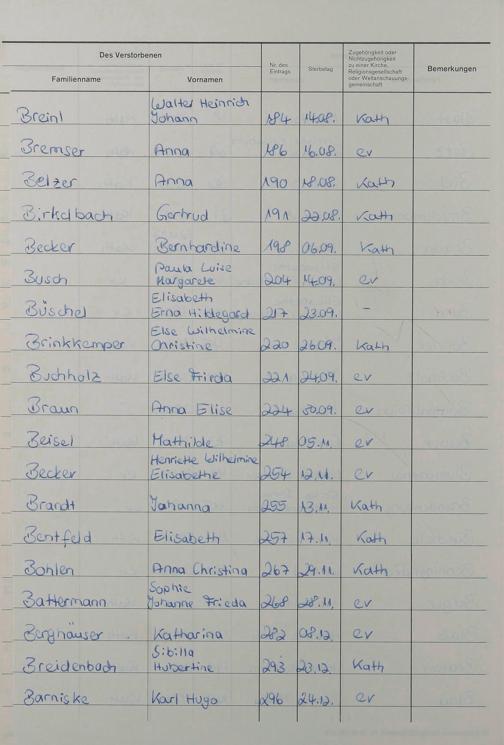 Des Verstorbenen
Nr. des Eintrags
Sterbetag
Zugehörigkeit oder Nichtzugehörigkeit zu einer Kirche, Religionsgesellschaft oder Weltanschauungsgemeinschaft
Bemerkungen
Familienname Vornamen
Breinl Walter Heinrich Johann 184 14.08. Kath
Bremser Anna 186 16.08. ev
Belzer Anna 190 18.08. Kath
Birkelbach Gertrud 191 22.08. Kath
Becker Bernhardine 198 06.09. Kath
Busch Paula Luise Margarete 204 14.09. ev
Büschel Elisabeth Erna Hildegard 217 23.09. -
Brinkkemper Else Wilhelmine Christine 220 26.09. Kath
Buchholz Else Frieda 221 24.09. ev
Braun Anna Elise 224 30.09. ev
Beisel Mathilde 248 05.11. ev
Becker Henriette Wilhelmine Elisabethe 254 12.11. ev
Brandt Johanna 255 13.11. Kath
Bentfeld Elisabeth 257 17.11. Kath
Bohlen Anna Christina 267 29.11. Kath
Battermann Sophie Johanne Frieda 268 28.11. ev
Berghäuser Katharina 282 08.12. ev
Breidenbach Sibilla Hubertine 293 23.12. Kath
Barniske Karl Hugo 296 24.12. ev